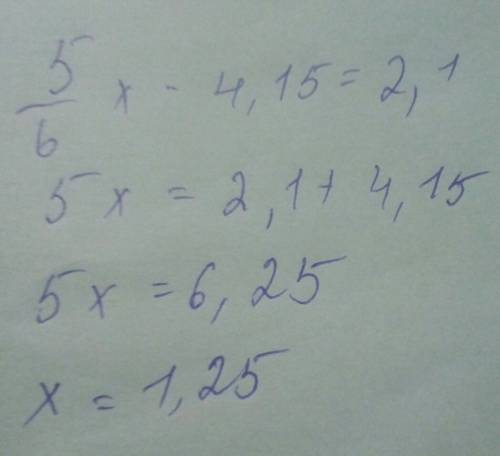 5/6 x - 4,15 = 2,1
5x = 2,1 + 4,15
5x = 6,25
x = 1,25